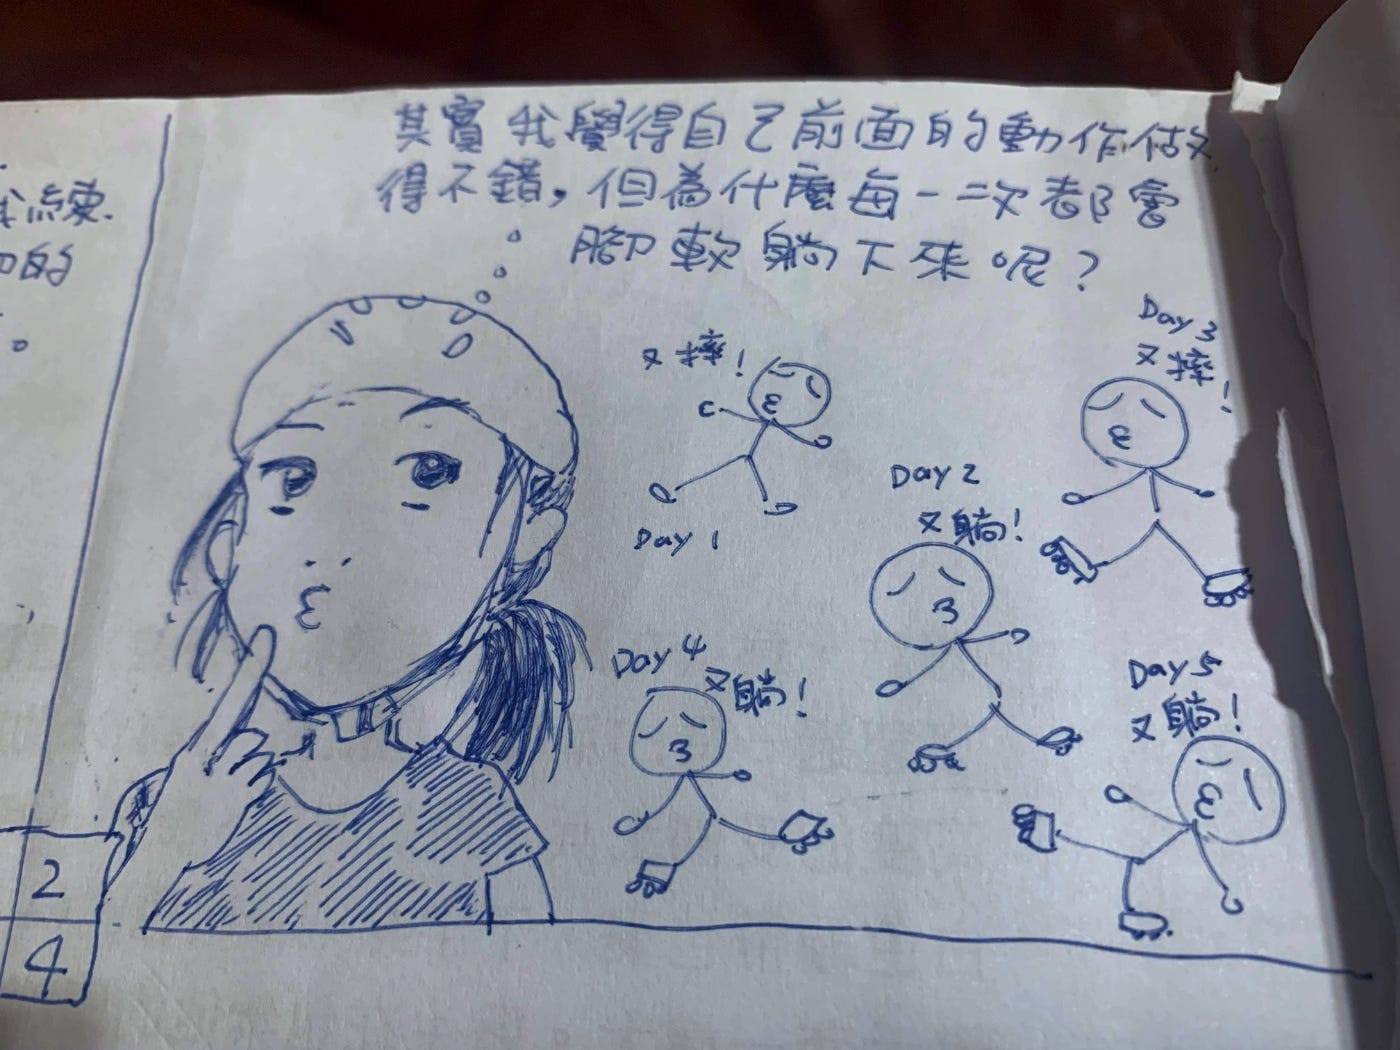 練.
的
其實我覺得自己前面的動作做
得不錯,但為什麼每一次都會
腳軟躺下來呢?
又摔!
Day 1
Day 2
又躺!
Day 3
又摔!
Day 4
又躺!
Day 5
又躺!
2
4